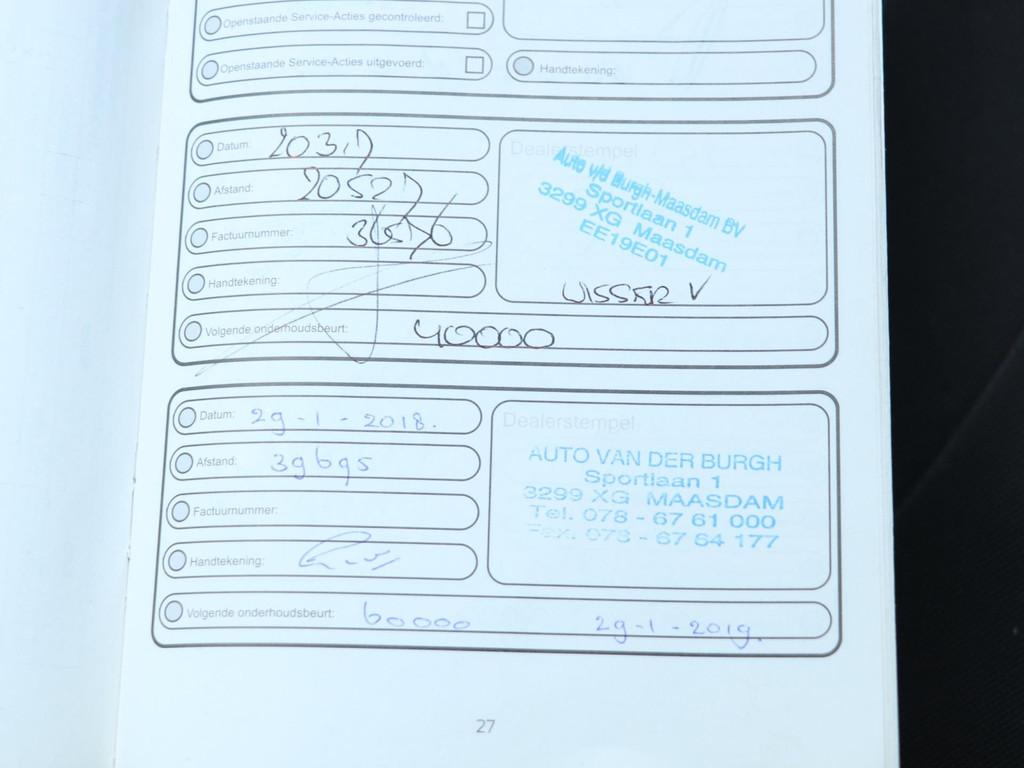 Openstaande Service-Acties gecontroleerd:
Openstaande Service-Acties uitgevoerd:
Handtekening:
Datum:
Afstand: 20527
Factuurnummer:
Handtekening:
Volgende onderhoudsbeurt: 40000
Dealerstempel
Auto v/d Burgh-Maasdam BV
Sportlaan 1
3299 XG Maasdam
EE19E01
VISSER V
Datum: 29-1-2018.
Afstand: 39695
Factuurnummer:
Handtekening:
Dealerstempel
AUTO VAN DER BURGH
Sportlaan 1
3299 XG MAASDAM
Tel. 078 - 67 61 000
Fax. 078 - 67 64 177
Volgende onderhoudsbeurt: 60000 29-1-2019.
27